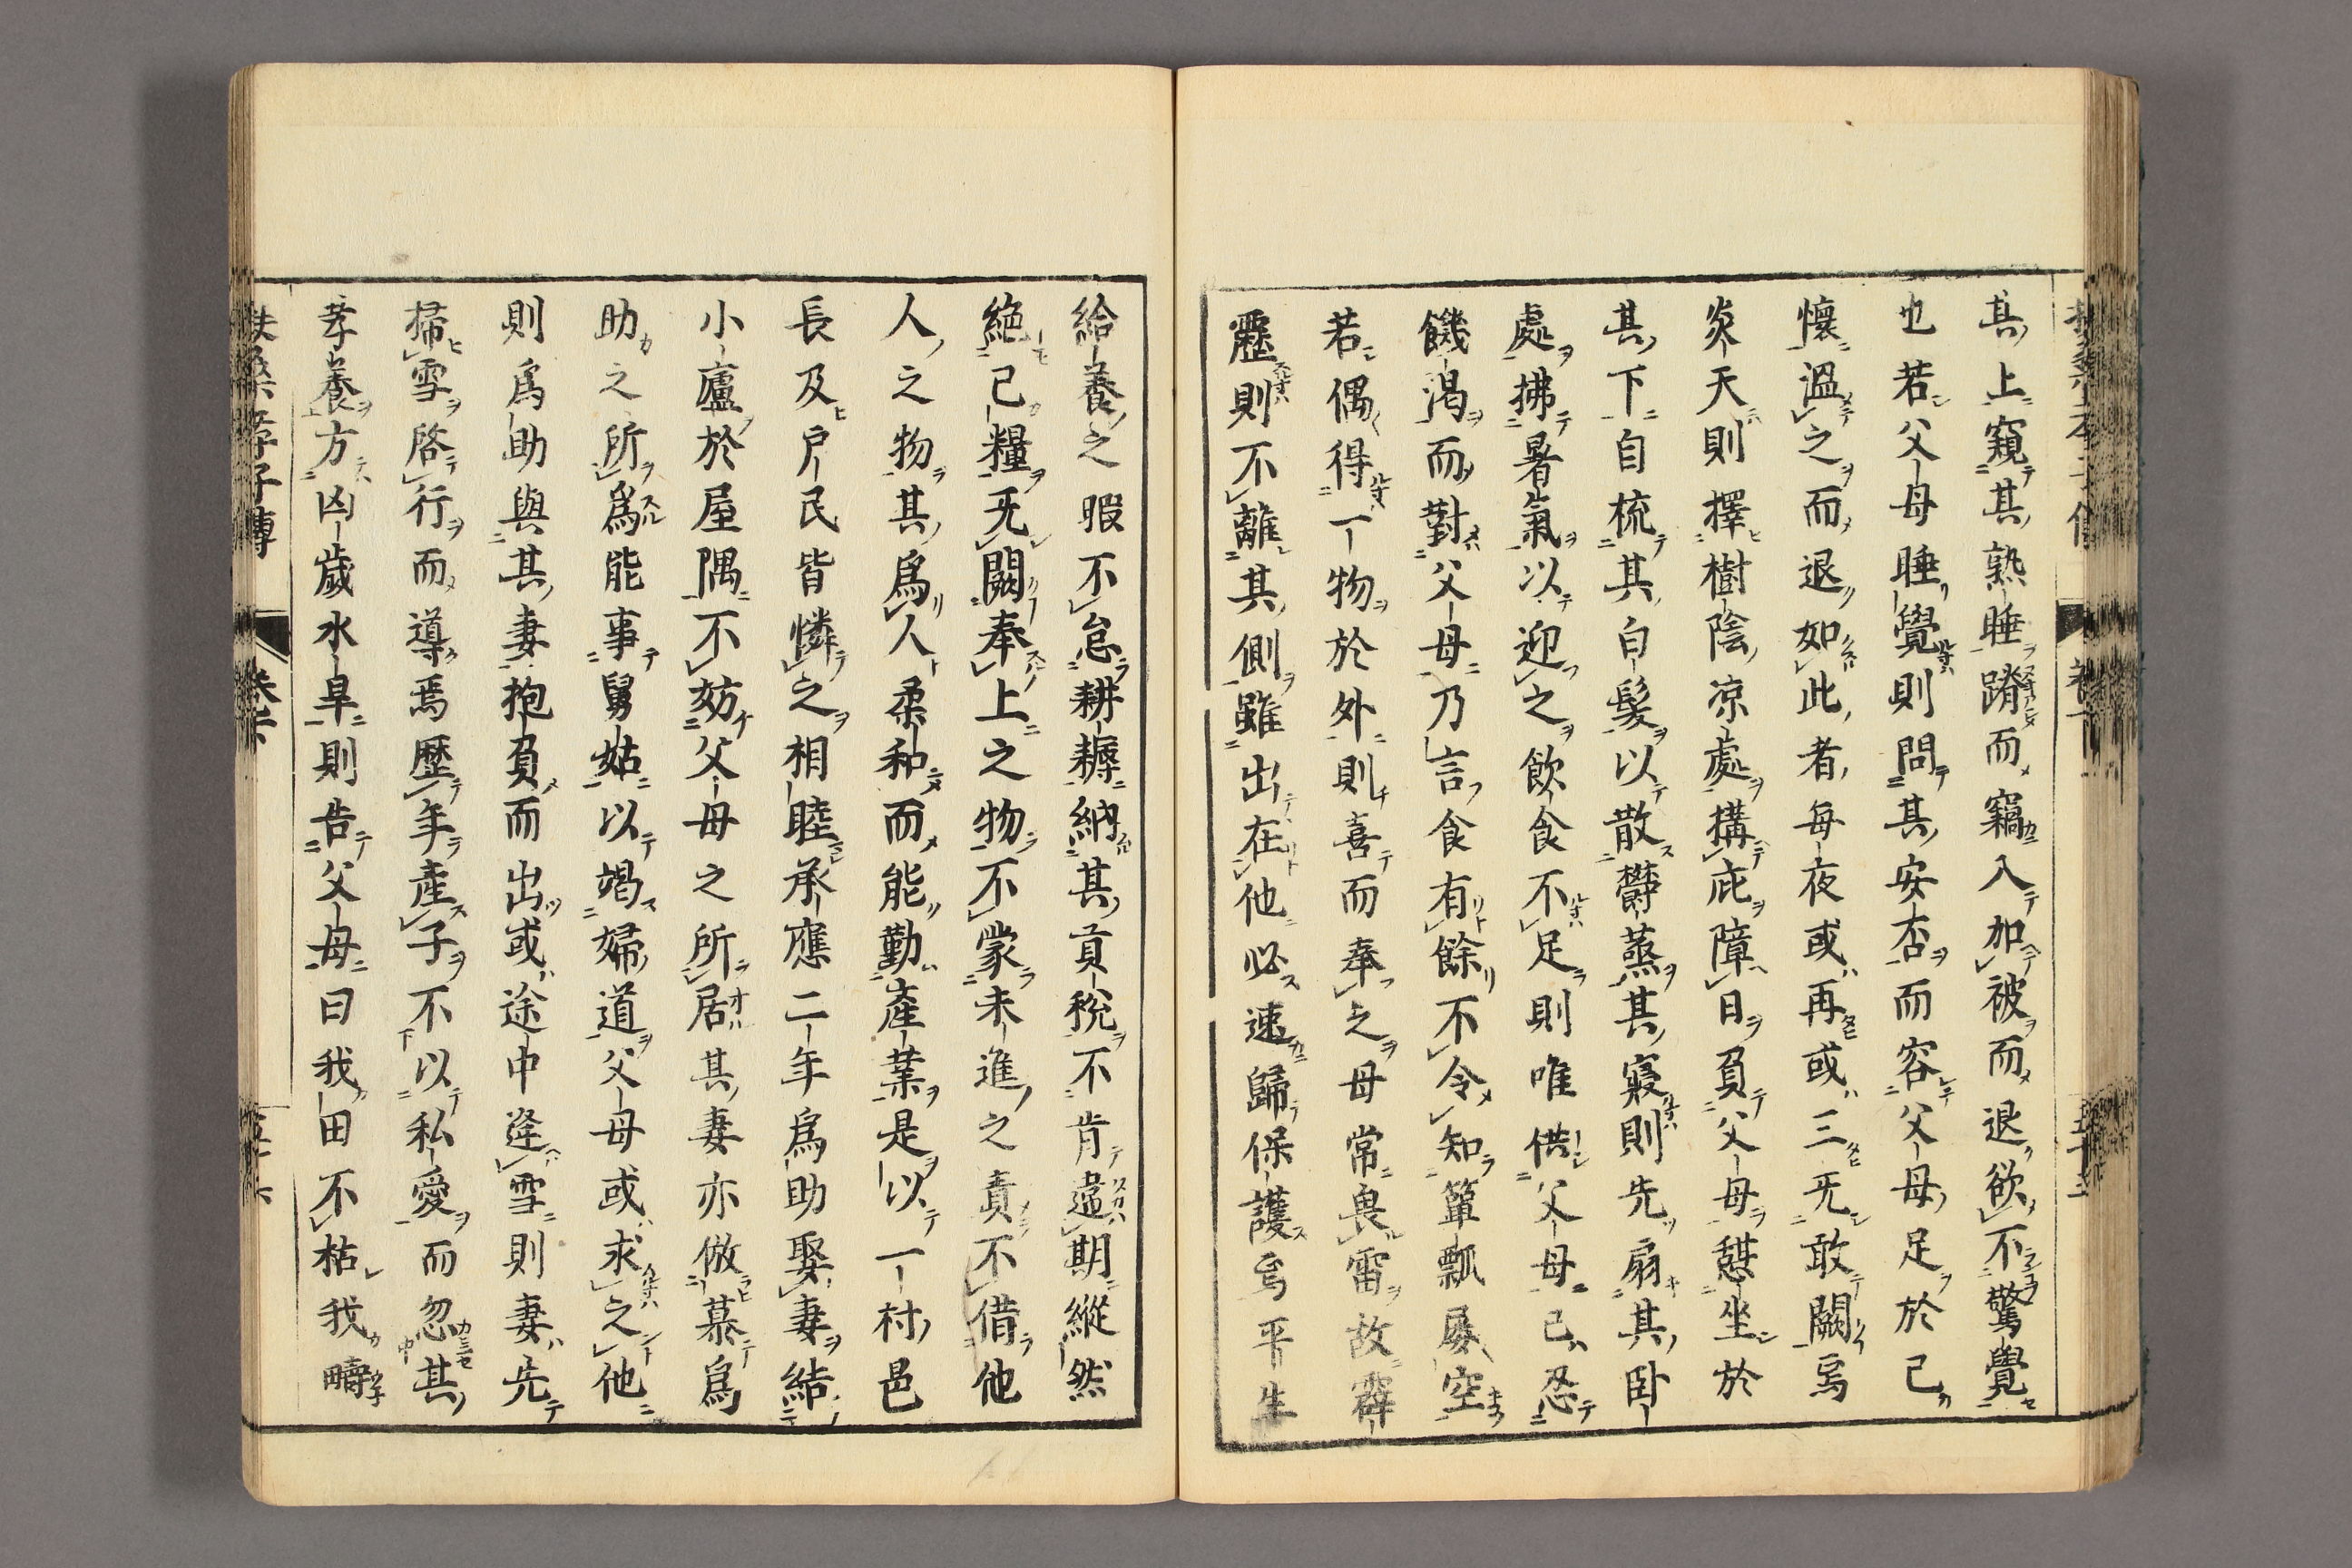 其上窺其熟睡蹐而竊入加被而退欲不驚覺
也若父母睡覺則問其安否而容父母足於己
懷溫之而退如此者每夜或再或三旡敢闕焉
炎天則擇樹陰凉處搆庇障日負父母憇坐於
其下自梳其白髮以散欝蒸其寢則先扇其卧
處拂暑氣以迎之飲食不足則唯供父母己忍
饑渴而對父母乃言食有餘不令知簞瓢屡空
若偶得一物於外則喜而奉之母常畏雷故霹
靂則不離其側雖出在他必速歸保護焉平生
給養之暇不怠耕耨納其貢稅不肯違期縱然
絕己糧旡闕奉上之物不蒙未進之責不借他
人之物其爲人柔和而能勤產業是以一村邑
長及戶民皆憐之相睦承應二年爲助娶妻結
小廬於屋隅不妨父母之所居其妻亦倣慕爲
助之所爲能事舅姑以竭婦道父母或求之他
則爲助與其妻抱負而出或途中逢雪則妻先
掃雪啓行而導焉歷年產子不以私愛而忽其
孝養方凶歲水旱則告父母曰我田不枯我疇
扶桑孝子傳 卷下